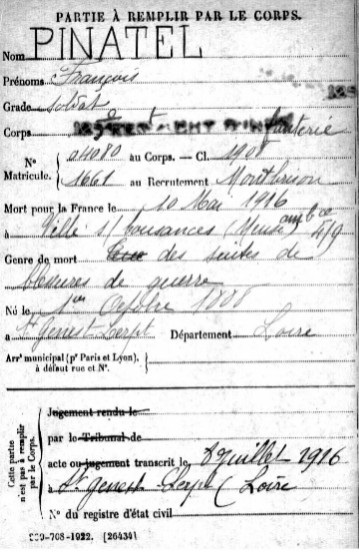 PARTIE À REMPLIR PAR LE CORPS.
Nom PINATEL
Prénoms François
Grade soldat
Corps
N° Matricule. 04080 au Corps. — Cl. 1908
1661 au Recrutement Montbrison
Mort pour la France le 10 Mai 1916
à Ville s/ Cousances (Meuse) amb ce 4/9
Genre de mort des suites de
blessures de guerre
Né le 1er Octobre 1888
à St Genest Lerpt Département Loire
Arrt municipal (pr Paris et Lyon),
à défaut rue et N°.
Cette partie
n'est pas à remplir
par le Corps.
Jugement rendu le
par le Tribunal de
acte ou jugement transcrit le 8 Juillet 1916
à St Genest-Lerpt (Loire
N° du registre d'état civil
[26434]